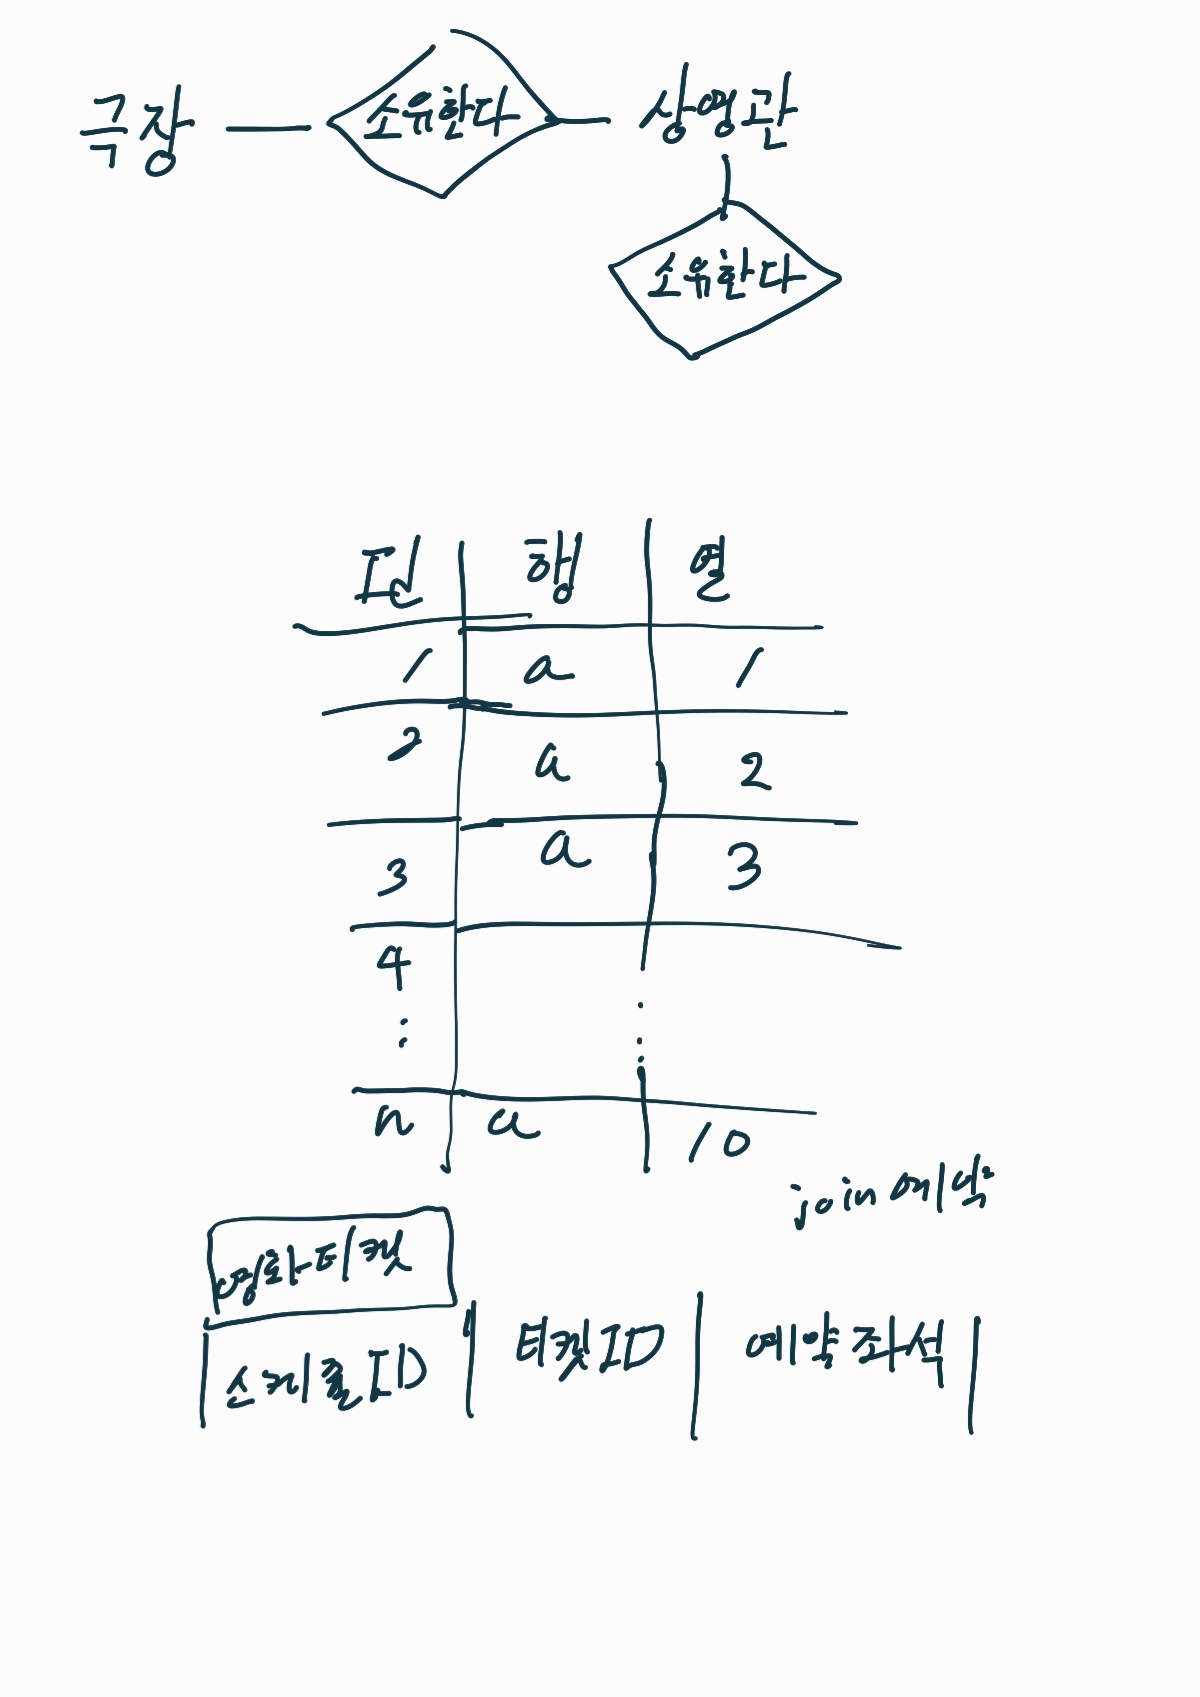 극장 소유한다 상영관
소유한다
핀 행 열
1 a 1
2 a 2
3 a 3
4
n a 10
join 예약
영화-티켓
스케줄ID 티켓ID 예약좌석